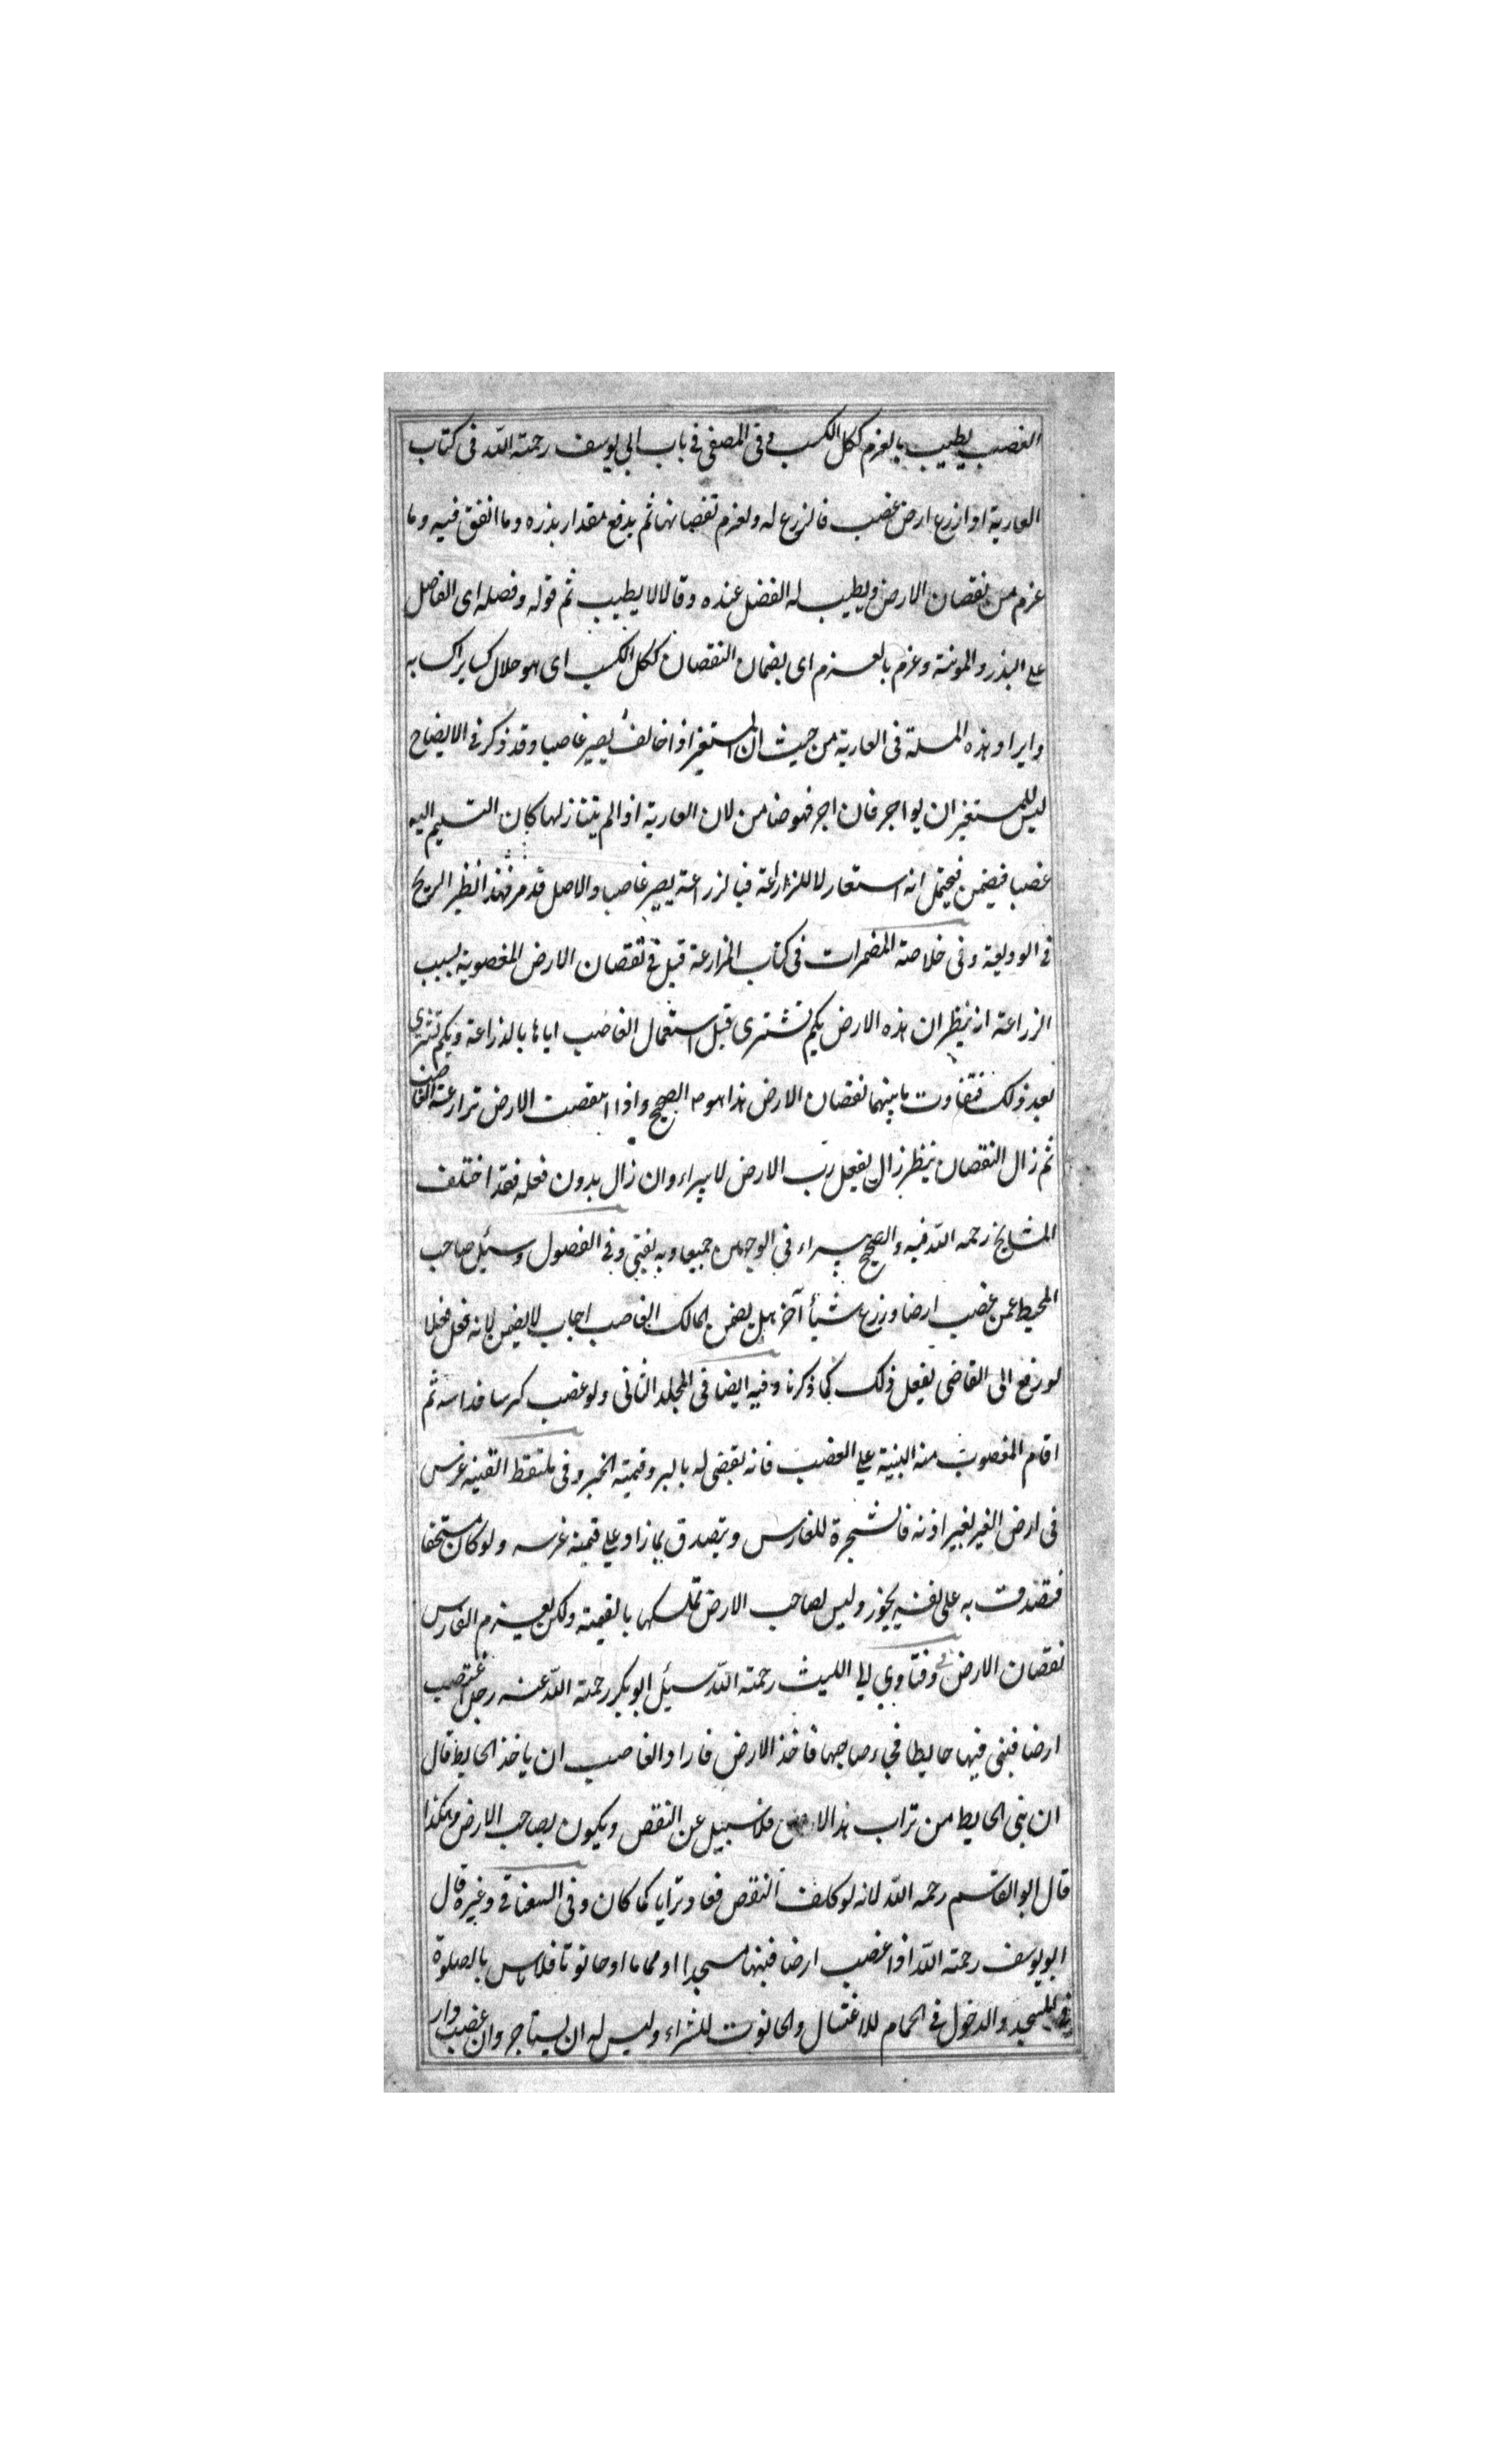 الغصب يطيب بالغرم ككل الكسب وفى المصفى فى باب ابى يوسف رحمته الله فى كتاب
العارية اذا زرع ارض غصب فالزرع له ولغرم نقصانها ثم يدفع مقدار بذره وما انفق فيه وما
غرم من نقصان الارض ويطيب له الفضل عنده وقالا لا يطيب ثم قوله وفضله اى الفاضل
على البذر والمونة وغرم بالغرم اى بضمان النقصان ككل الكسب اى هو حلال
وايراد هذه المسلة فى العارية من حيث ان المستعير اذا خالف يصير غاصبا وقد ذكر فى الايضاح
ليس للمستعير ان يواجر فان اجر فهو ضامن لان العارية اذا لم يتنازلها كان التسليم اليه
غصبا فيضمن فيحتمل انه استعار لا للزراعة فبالزراعة يصير غاصبا والاصل قد مر فهذا نظير الربح
فى الوديعة وفى خلاصة المضمرات فى كتاب المزارعة قيل فى نقصان الارض المغصوبة بسبب
الزراعة ان ينظر ان هذه الارض بكم تشترى قبل استعمال الغاصب اياها بالزراعة وبكم تشترى
بعد ذلك فتفاوت ما بينهما نقصان الارض هذا هو الصحيح واذا انتقصت الارض بزراعة الغاصب
ثم زال النقصان ينظر زال بفعل رب الارض لا يبراء وان زال بدون فعله فقد اختلف
المشايخ رحمه الله فيه والصحيح يبراء فى الوجهين جميعا وبه نفتى وفى الفصول وسئل صاحب
المحيط عمن غصب ارضا وزرع شيأ آخر هل يضمن المالك الغاصب اجاب لا يضمن لانه فعل فعلا
لو رفع الى القاضى يفعل ذلك كما ذكرنا وفيه ايضا فى المجلد الثانى ولو غصب كرسا فداسه ثم
اقام المغصوب منه البنية على الغصب فانه يقضى له بالبر وقيمته الخبر وفى ملتقط القنيه غرس
فى ارض الغير بغير اذنه فالشجرة للغارس ويتصدق بما زاد على قيمة غرسه ولو كان مستحقا
فتصدقت به على نفسه يجوز وليس لصاحب الارض تملكها بالقيمته ولكن يغرم الغارس
نقصان الارض وفى فتاوي ابى الليث رحمته الله سئيل ابو بكر رحمته الله عنه رجل اغتصب
ارضا فبنى فيها حايطا فجاء صاحبها فاخذ الارض فاراد الغاصب ان ياخذ الحايط قال
ان بنى الحايط من تراب هذ الارض فلا سبيل عن النقض ويكون لصاحب الارض وهكذا
قال ابو القاسم رحمه الله لانه لو كلف النقض فعاد ترابا كما كان وفى السغناقى وغيره قال
ابو يوسف رحمته الله اذا غصب ارضا فبنها مسجدا او حماما او حانوتا فلا باس بالصلوة
فى المسجد والدخول فى الحمام للاغتسال والحانوت للشراء وليس له ان يستاجر وان غصب دار